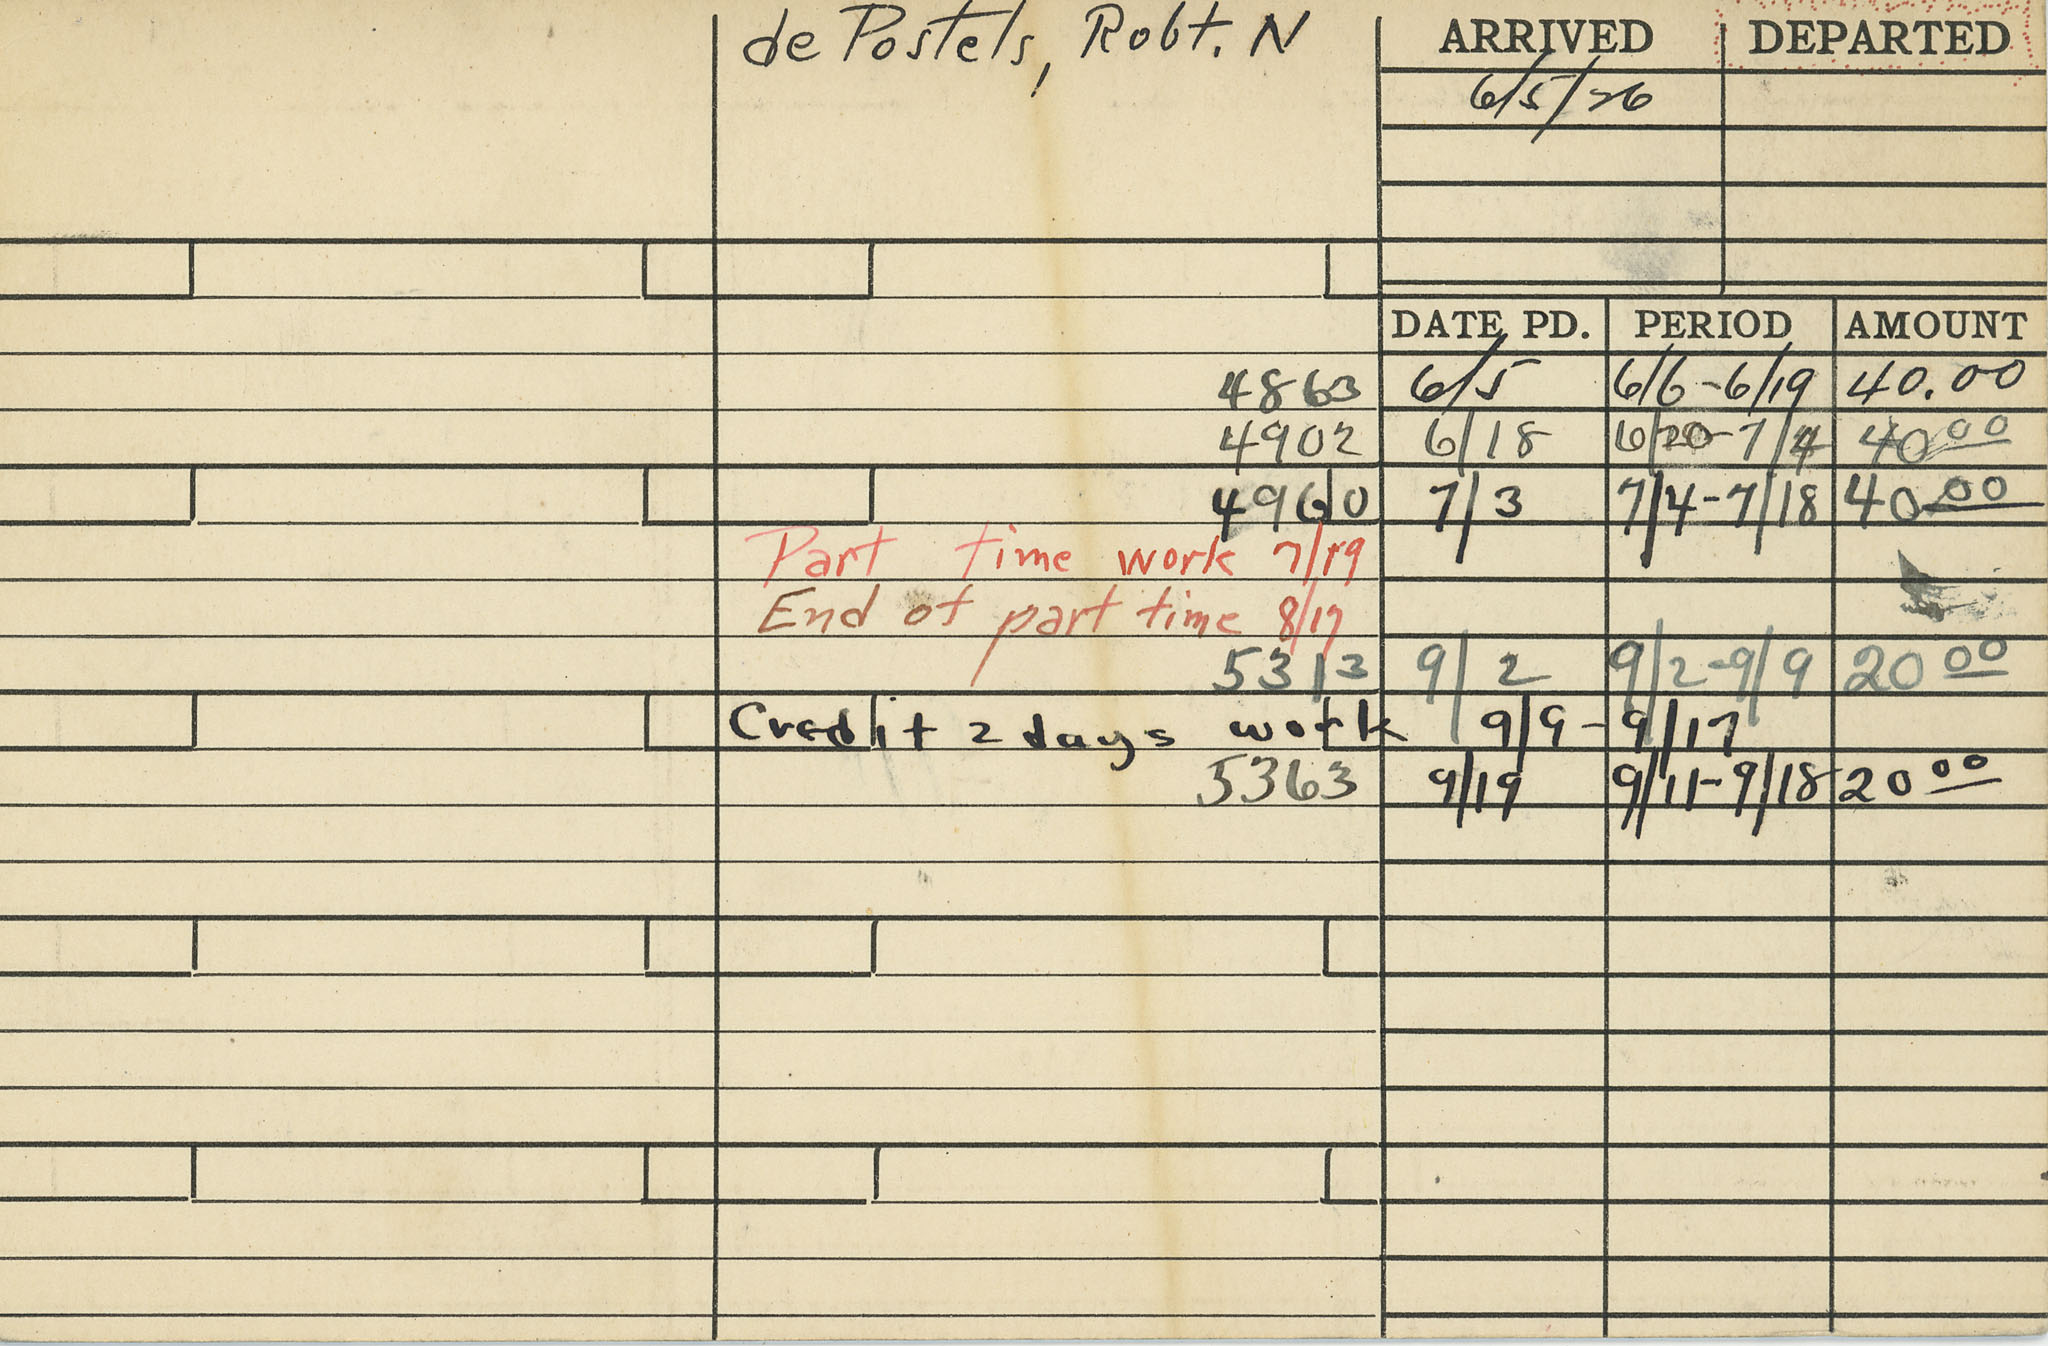 de Postels, Robt. N
ARRIVED DEPARTED
6/5/26
DATE PD. PERIOD AMOUNT
4863 6/5 6/6-6/19 40.00
4902 6/18 6/20-7/4 40 00
4960 7/3 7/4-7/18 40 00
Part time work 7/19
End of part time 8/17
5313 9/2 9/2-9/9 20 00
Credit 2 days work 9/9-9/17
5363 9/19 9/11-9/18 20 00